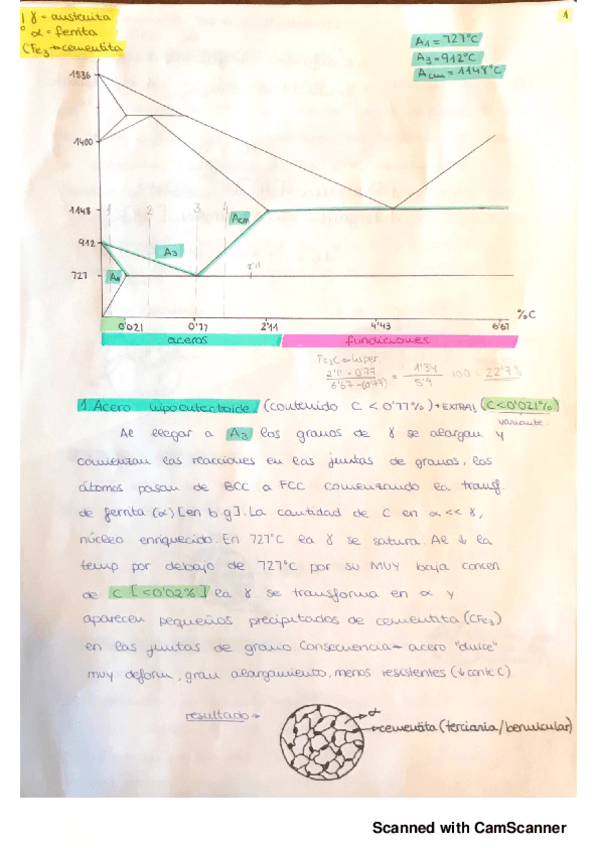 γ = austenita
α = ferrita
CFe3 → cementita
1
A1 = 727°C
A3 = 912°C
Acm = 1148°C
1536
1400
1148
1 2 3 4
Acm
912
A3
727
A1
2'11
%C
0'021 0'77 2'11 4'43 6'67
aceros fundiciones
2'11 - 0'77 / 6'67-(0'77) = 1'34 / 5'9 100 = 22'7%
1. Acero hipoeutectoide (contenido C < 0'77%) + EXTRA (C<0'021%)
variante.
Al llegar a A3 los granos de γ se alargan y
comienzan las reacciones en las juntas de granos, los
átomos pasan de BCC a FCC comenzando la transf.
de ferrita (α) [en b.g]. La cantidad de C en α << γ,
núcleo enriquecido. En 727°C la γ se satura. Al ↓ la
temp por debajo de 727°C por su MUY baja concen
de C [<0'02%] la γ se transforma en α y
aparecen pequeños precipitados de cementita (CFe3)
en las juntas de grano Consecuencia → acero "dulce"
muy deform, gran alargamiento, menos resistentes (↓ cont C)
resultado →
α
cementita (terciaria/bermicular)
Scanned with CamScanner